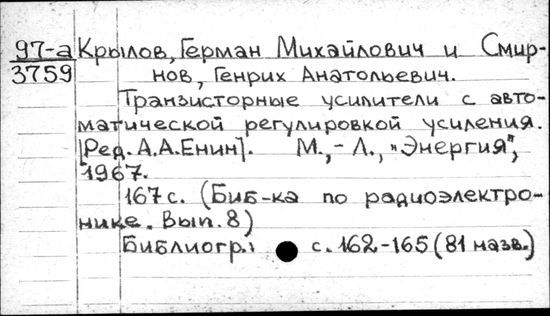 97-а Крылов, Герман Михайлович и Смир-
3759 нов, Генрих Анатольевич.
Транзисторные усилители с авто-
матической регулировкой усиления.
[Ред. А.А.Енин]. М.,-Л., "Энергия",
1967.
167 с. (Биб-ка по радиоэлектро-
нике. Вып. 8)
Библиогр.: с. 162-165 (81 назв.)